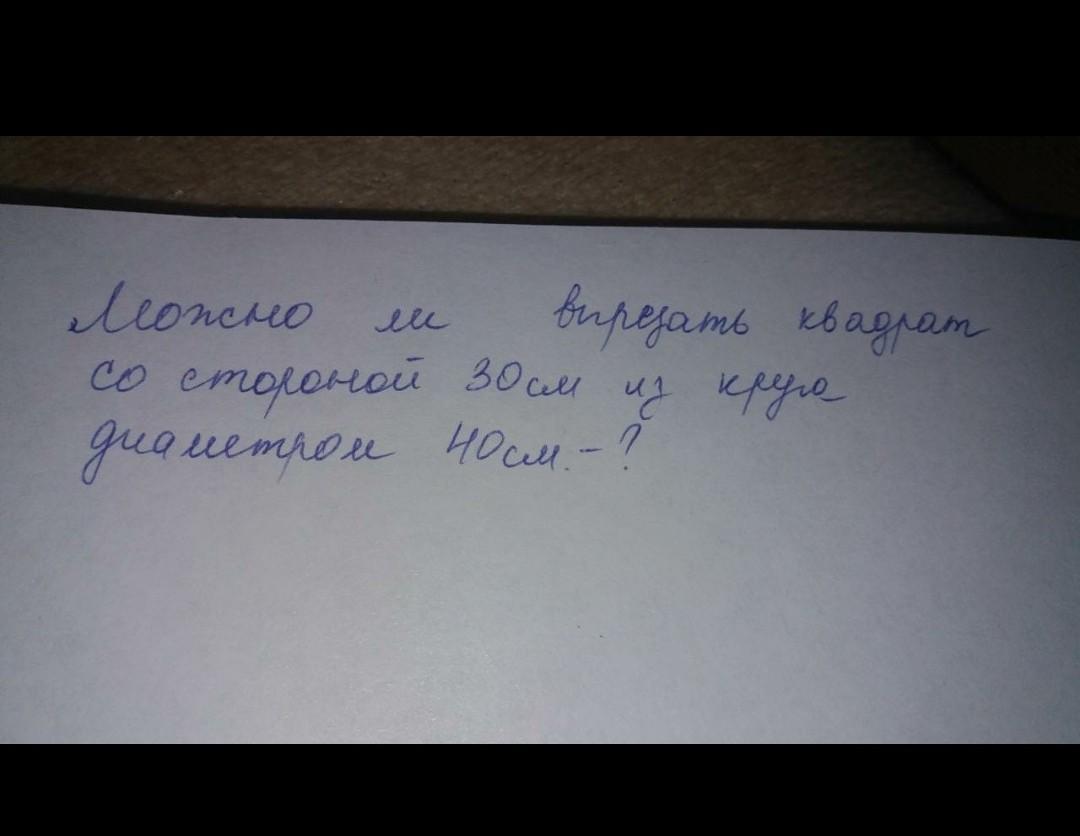 Можно ли вырезать квадрат
со стороной 30см из круга
диаметром 40см.-?